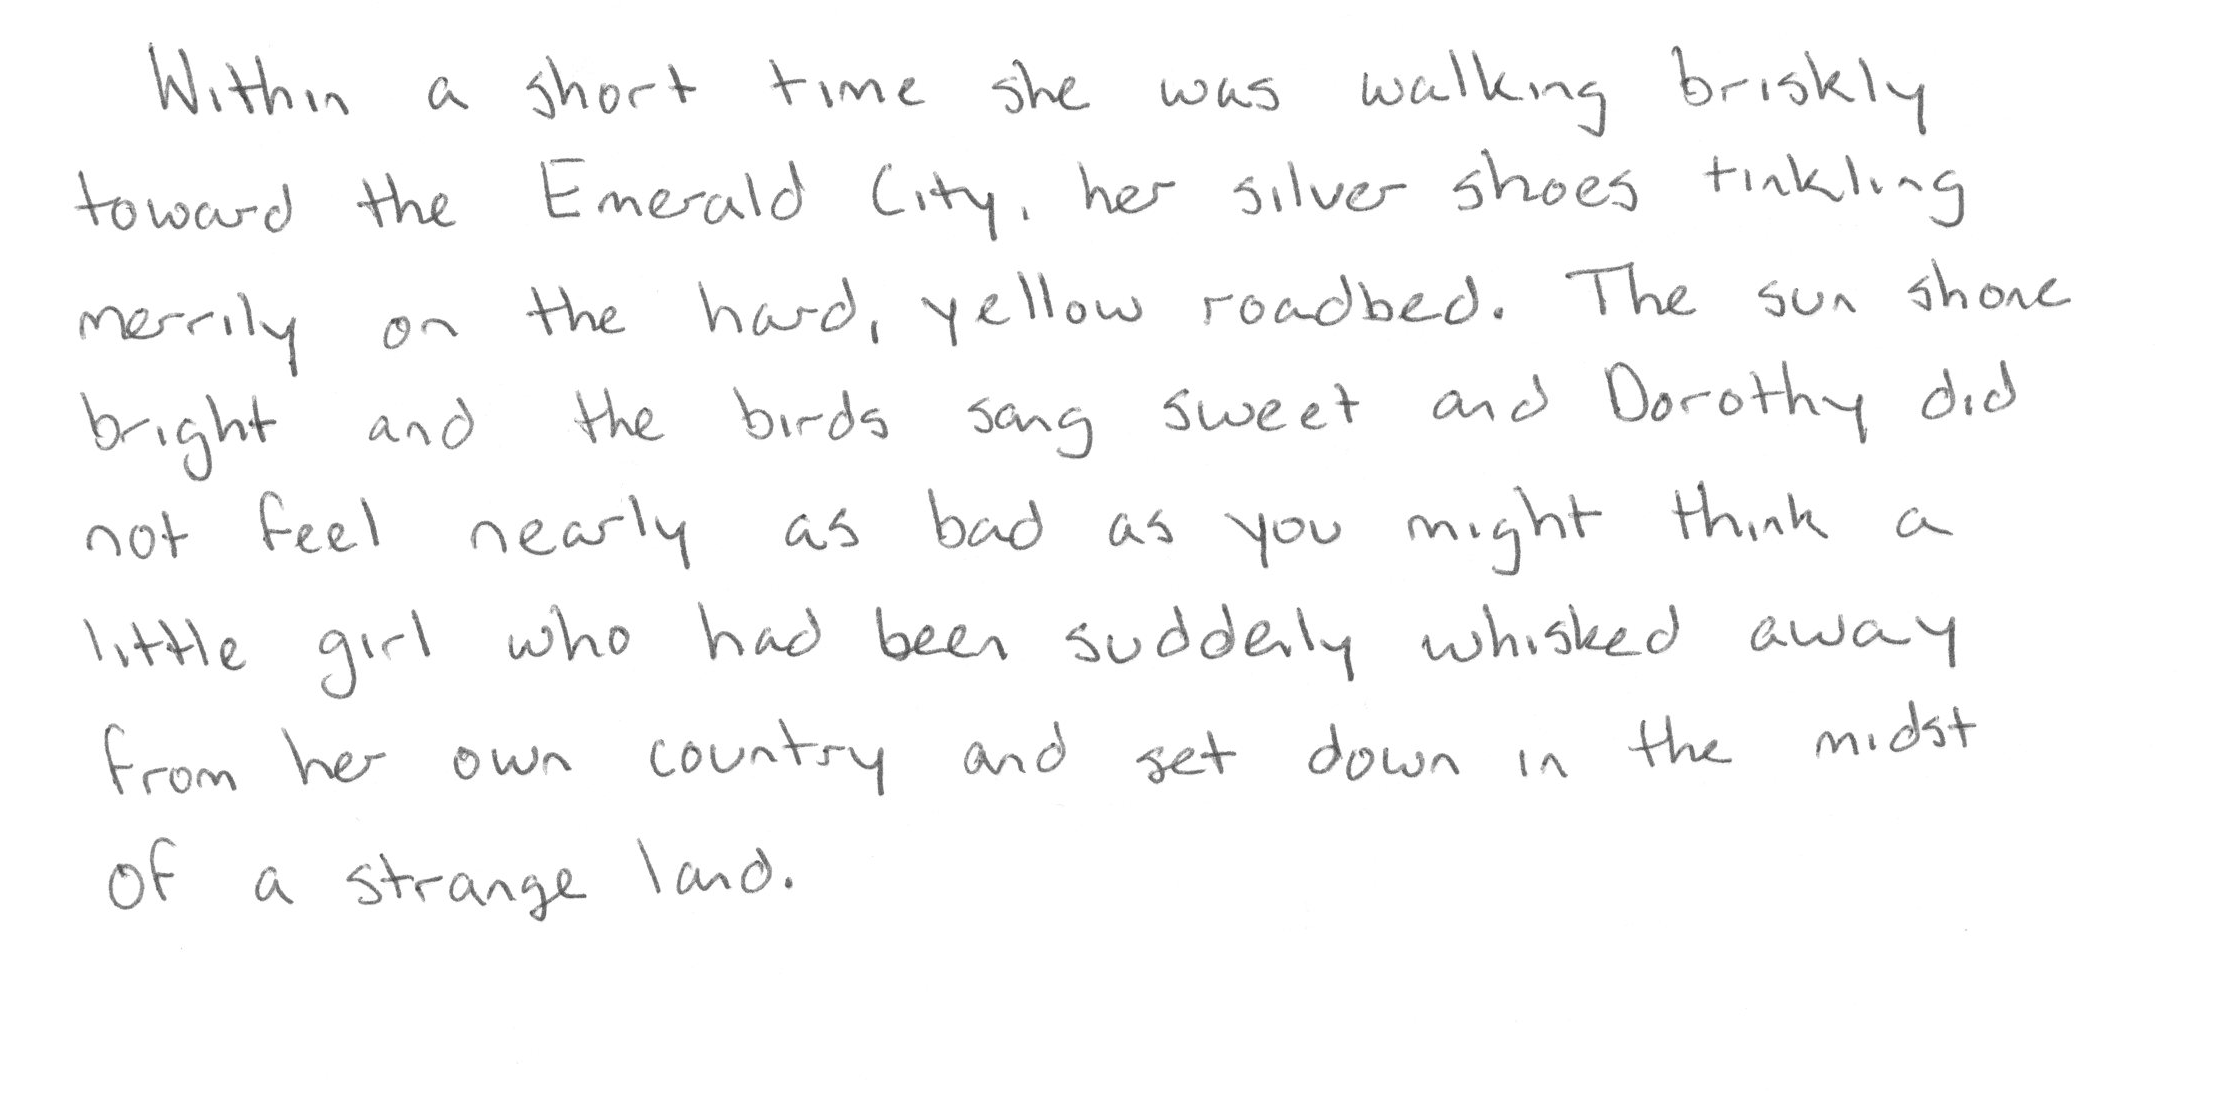 Within a short time she was walking briskly
toward the Emerald City, her silver shoes tinkling
merrily on the hard, yellow roadbed. The sun shone
bright and the birds sang sweet and Dorothy did
not feel nearly as bad as you might think a
little girl who had been suddenly whisked away
from her own country and set down in the midst
of a strange land.